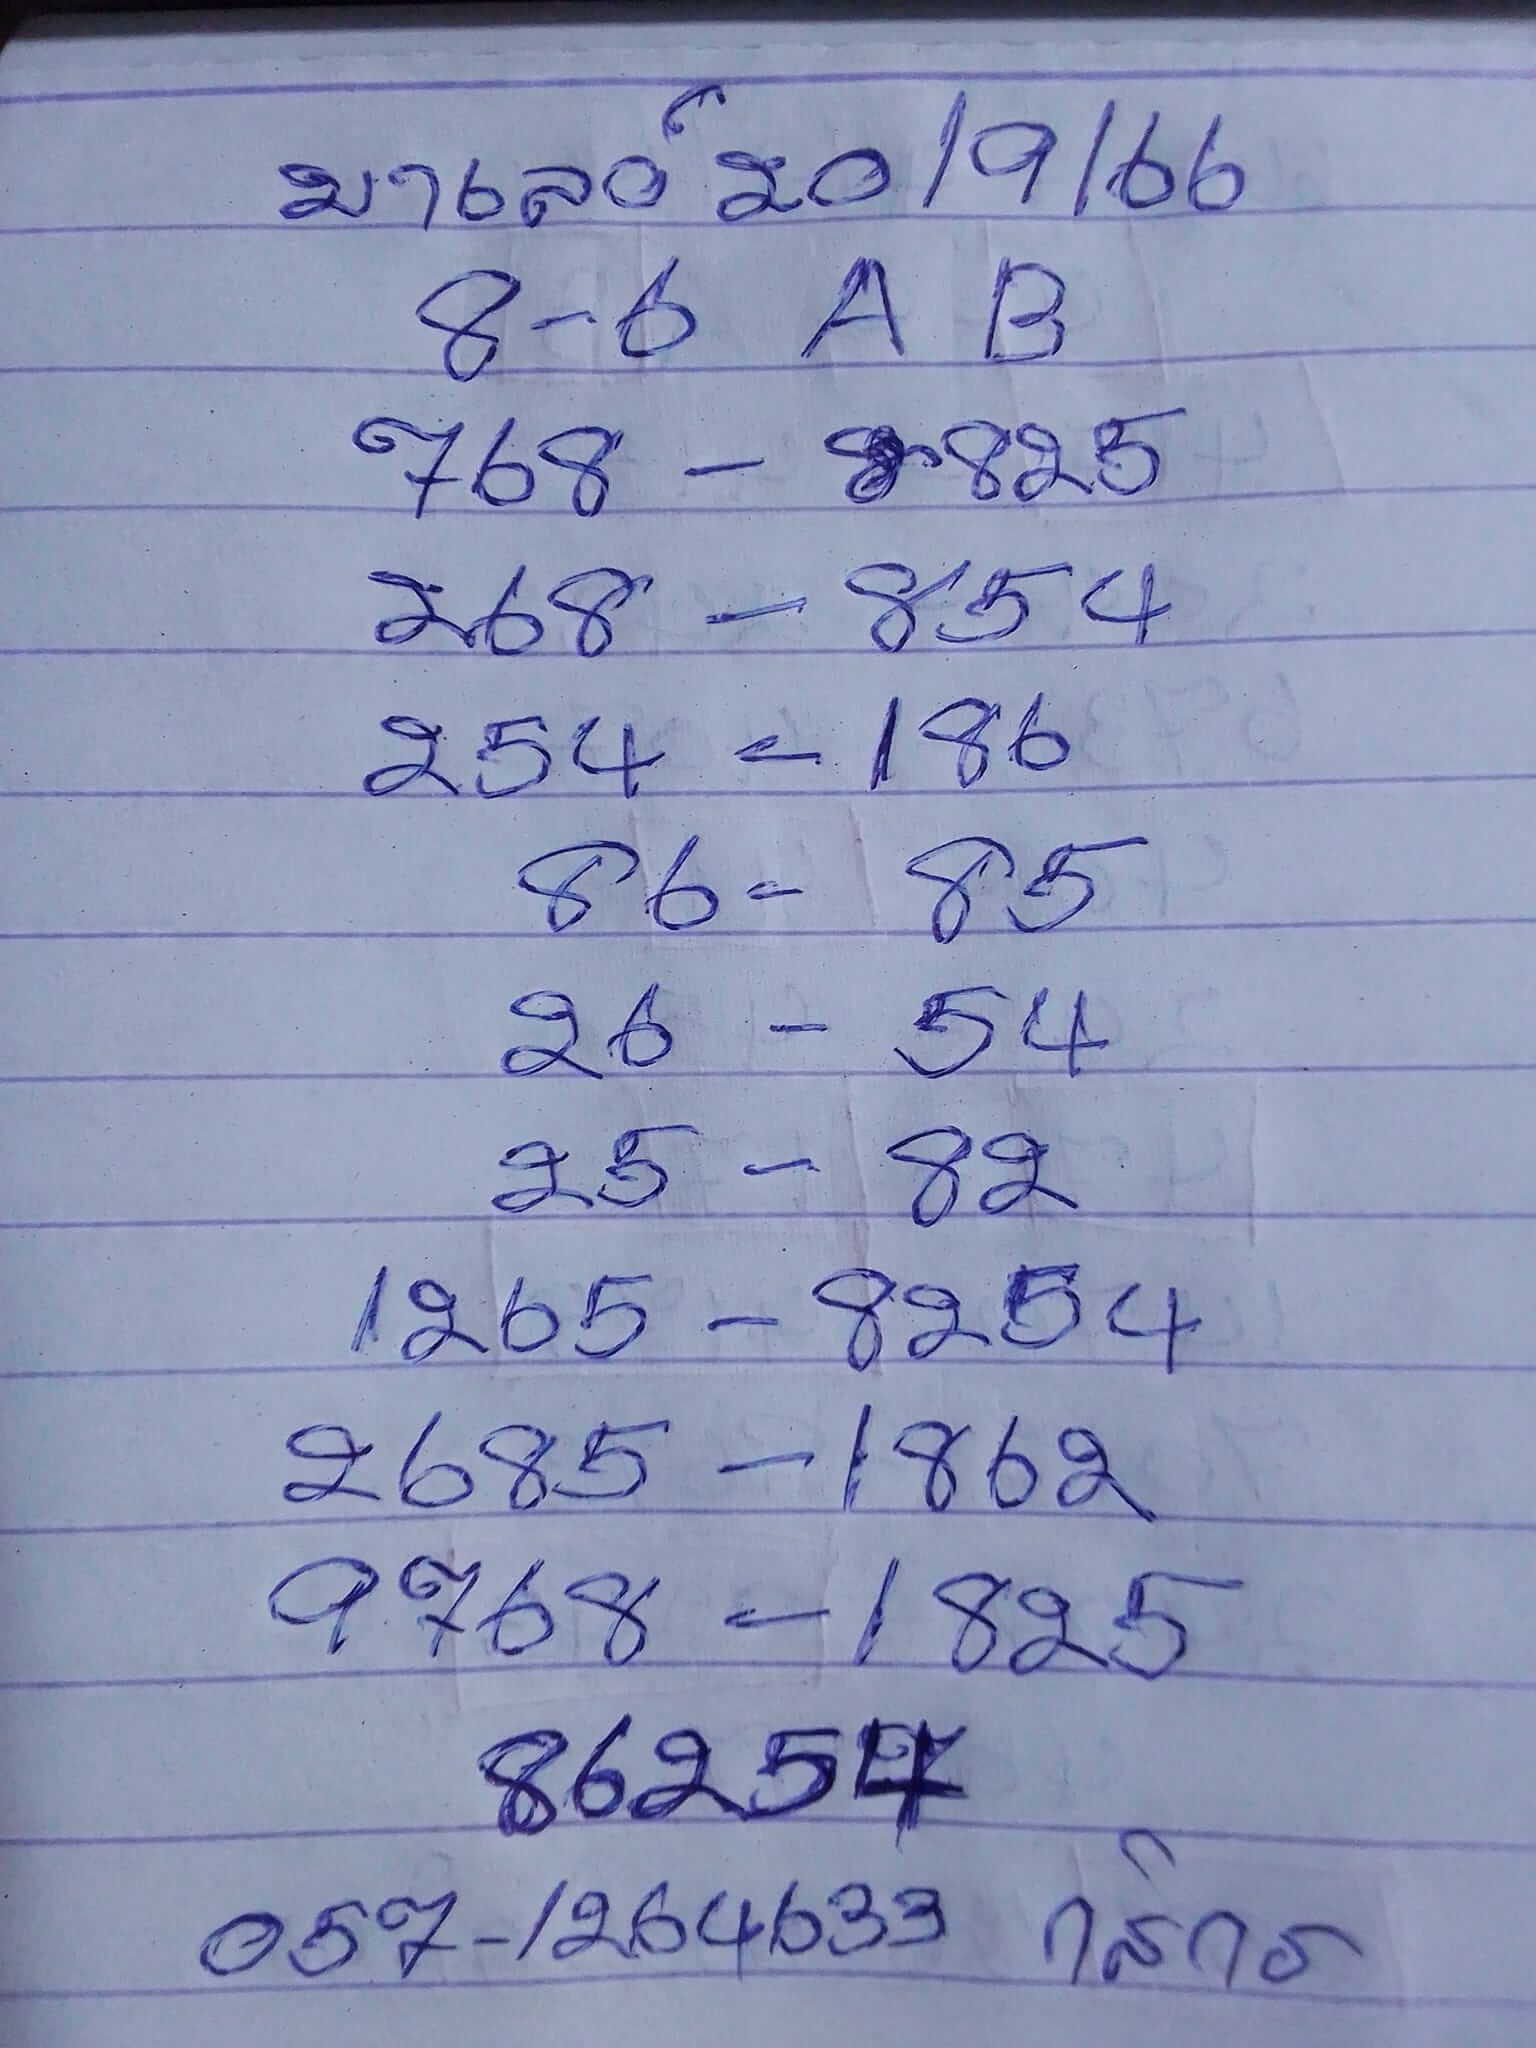 มาเลย์ 20/9/66
8-6 A B
768 - 8825
268 - 854
254 - 186
86 - 85
26 - 54
25 - 82
1265 - 8254
2685 - 1862
9768 - 1825
86254
057-1264633